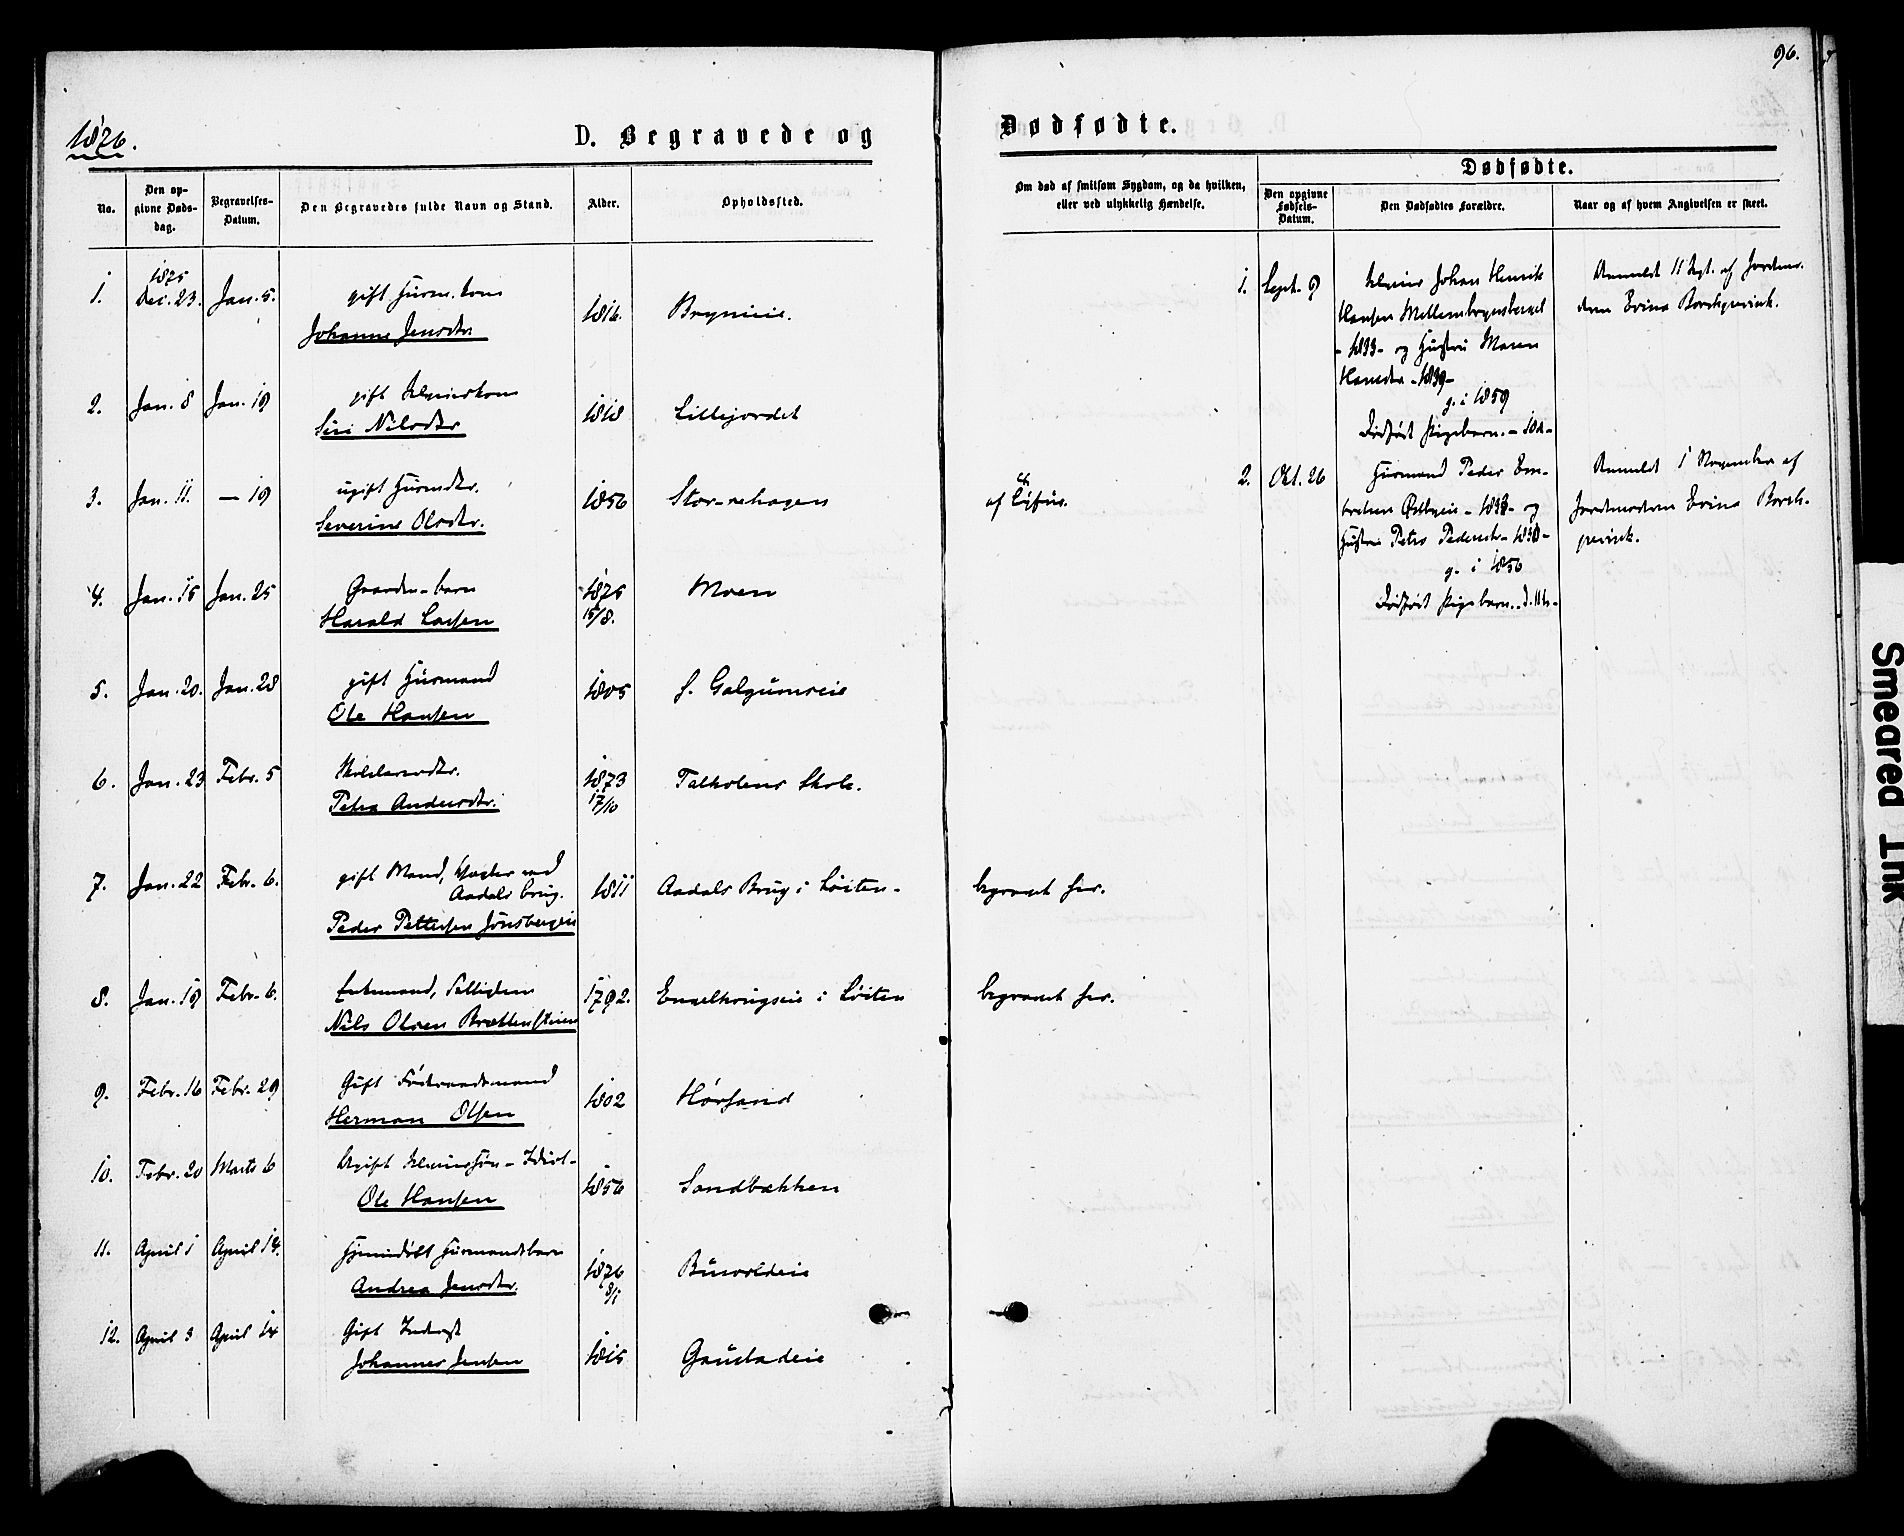 96.
1876.
D. Begravede og Dødfødte.
No.
Den opgivne Dødsdag.
Begravelses-Datum.
Den Begravedes fulde Navn og Stand.
Alder.
Opholdssted.
Om død af smitsom Sygdom, og da hvilken, eller ved ulykkelig Hændelse.
Dødfødte.
Den opgivne Fødsels-Datum.
Den Dødfødtes Forældre.
Naar og af hvem Angivelsen er skeet.
1. 1875 Dec. 23. Jan. 5. gift Huusm.kone
Johanne Jensdtr 1816. Brynieie.
2. Jan. 8 Jan. 19 gift
Siri Nilsdtr 1818 Lillejordet
3. Jan. 11. — 19 ugift Huusmdtr.
Severine Olsdtr. 1856 Stor-rehagen af Tÿfus.
4. Jan. 15 Jan. 25 Gaardm-barn
Harald Larsen 1875 15/8. Moen
5. Jan. 20. Jan. 28 gift Huusmand
Ole Hansen 1805 S. Galgumseie
6. Jan. 23 Febr. 5
Petra Andersdtr. 1873 17/10 Talkolens Skole.
7. Jan. 22 Febr. 6. gift Mand, Vægter ved
Aadals brug.
Peder Pettersen Jønsbergeie 1811 Aadals Brug i Løiten - begravet her.
8. Jan. 19 Febr. 6. Enkemand,
Nils Olsen Brættensteien 1792. Engelkrugseie i Løiten begravet her.
9. Febr. 16 Febr. 29 Gift Føderaadsmand
Herman Olsen 1802 Hørsand
10. Febr. 20 Marts 6 Ugift - Idiot -
Ole Hansen 1856 Sandbækken
11. April 1 April 14. Huusmandsbarn
Andrea Jensdtr. 1876 8/1
12. April 3 April 14 Gift Inderst
Johannes Jensen 1815 Gaustadeie
1. Sept. 9 Johan Henrik
Hansen
- 1833 - og Hustru Maren
Hansdtr - 1839 -
g. i 1859
Dødfødt Pigebarn.
Anmeldt 11 Sept. af Jordmo-
deren Evina Borchgrevink.
2. Okt. 26 Huusmand Peder Em-
bretsen Østbyeie - 1833 - og
Hustru Petra Pedersdtr - 1830 -
g. i 1856
Dødfødt Pigebarn.
Anmeldt 1 November af
Jordmoderen Evina Borch-
grevink.
Smeared Ink